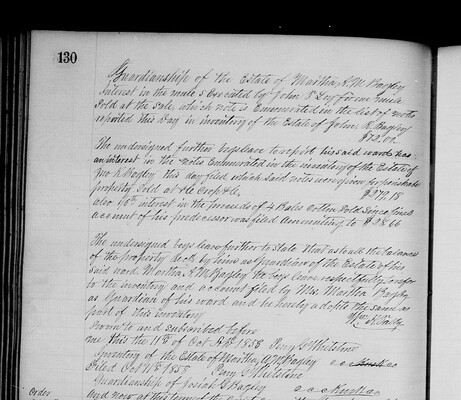 130
Guardianship of the Estate of Martha A. M. Bagley
Interest in the mule executed by John S for mule
Sold at the sale, which note is Enumerated in the list of notes
reported this day in inventory of the Estate of John R. Bagley
The undersigned further begs leave to report his said wards has
an interest in the notes Enumerated in the inventory of the Estate of
Jno R Bagley this day filed, which said notes were given for perishable
property Sold at the Crop &c. $279,18
also interest in the proceeds of 4 Bales Cotton Sold Since final
account of his predecessor was filed amounting to
The undersigned begs leave further to State that as to all the balance
of the property &c by him as Guardian of the Estate of his
Said ward Martha A. M. Bagley he begs leave respectfully to refer
to the inventory and account filed by Mrs. Martha Bagley
as Guardian of his ward and he hereby adopts the same as
part of this inventory
Wm.
Sworn to and subscribed before
me this the 11th of Oct 1858
Inventory of the Estate of Martha A M Bagley
Filed Oct 11th 1858
Guardianship of Josiah Bagley
Order
And now at this term of the Court